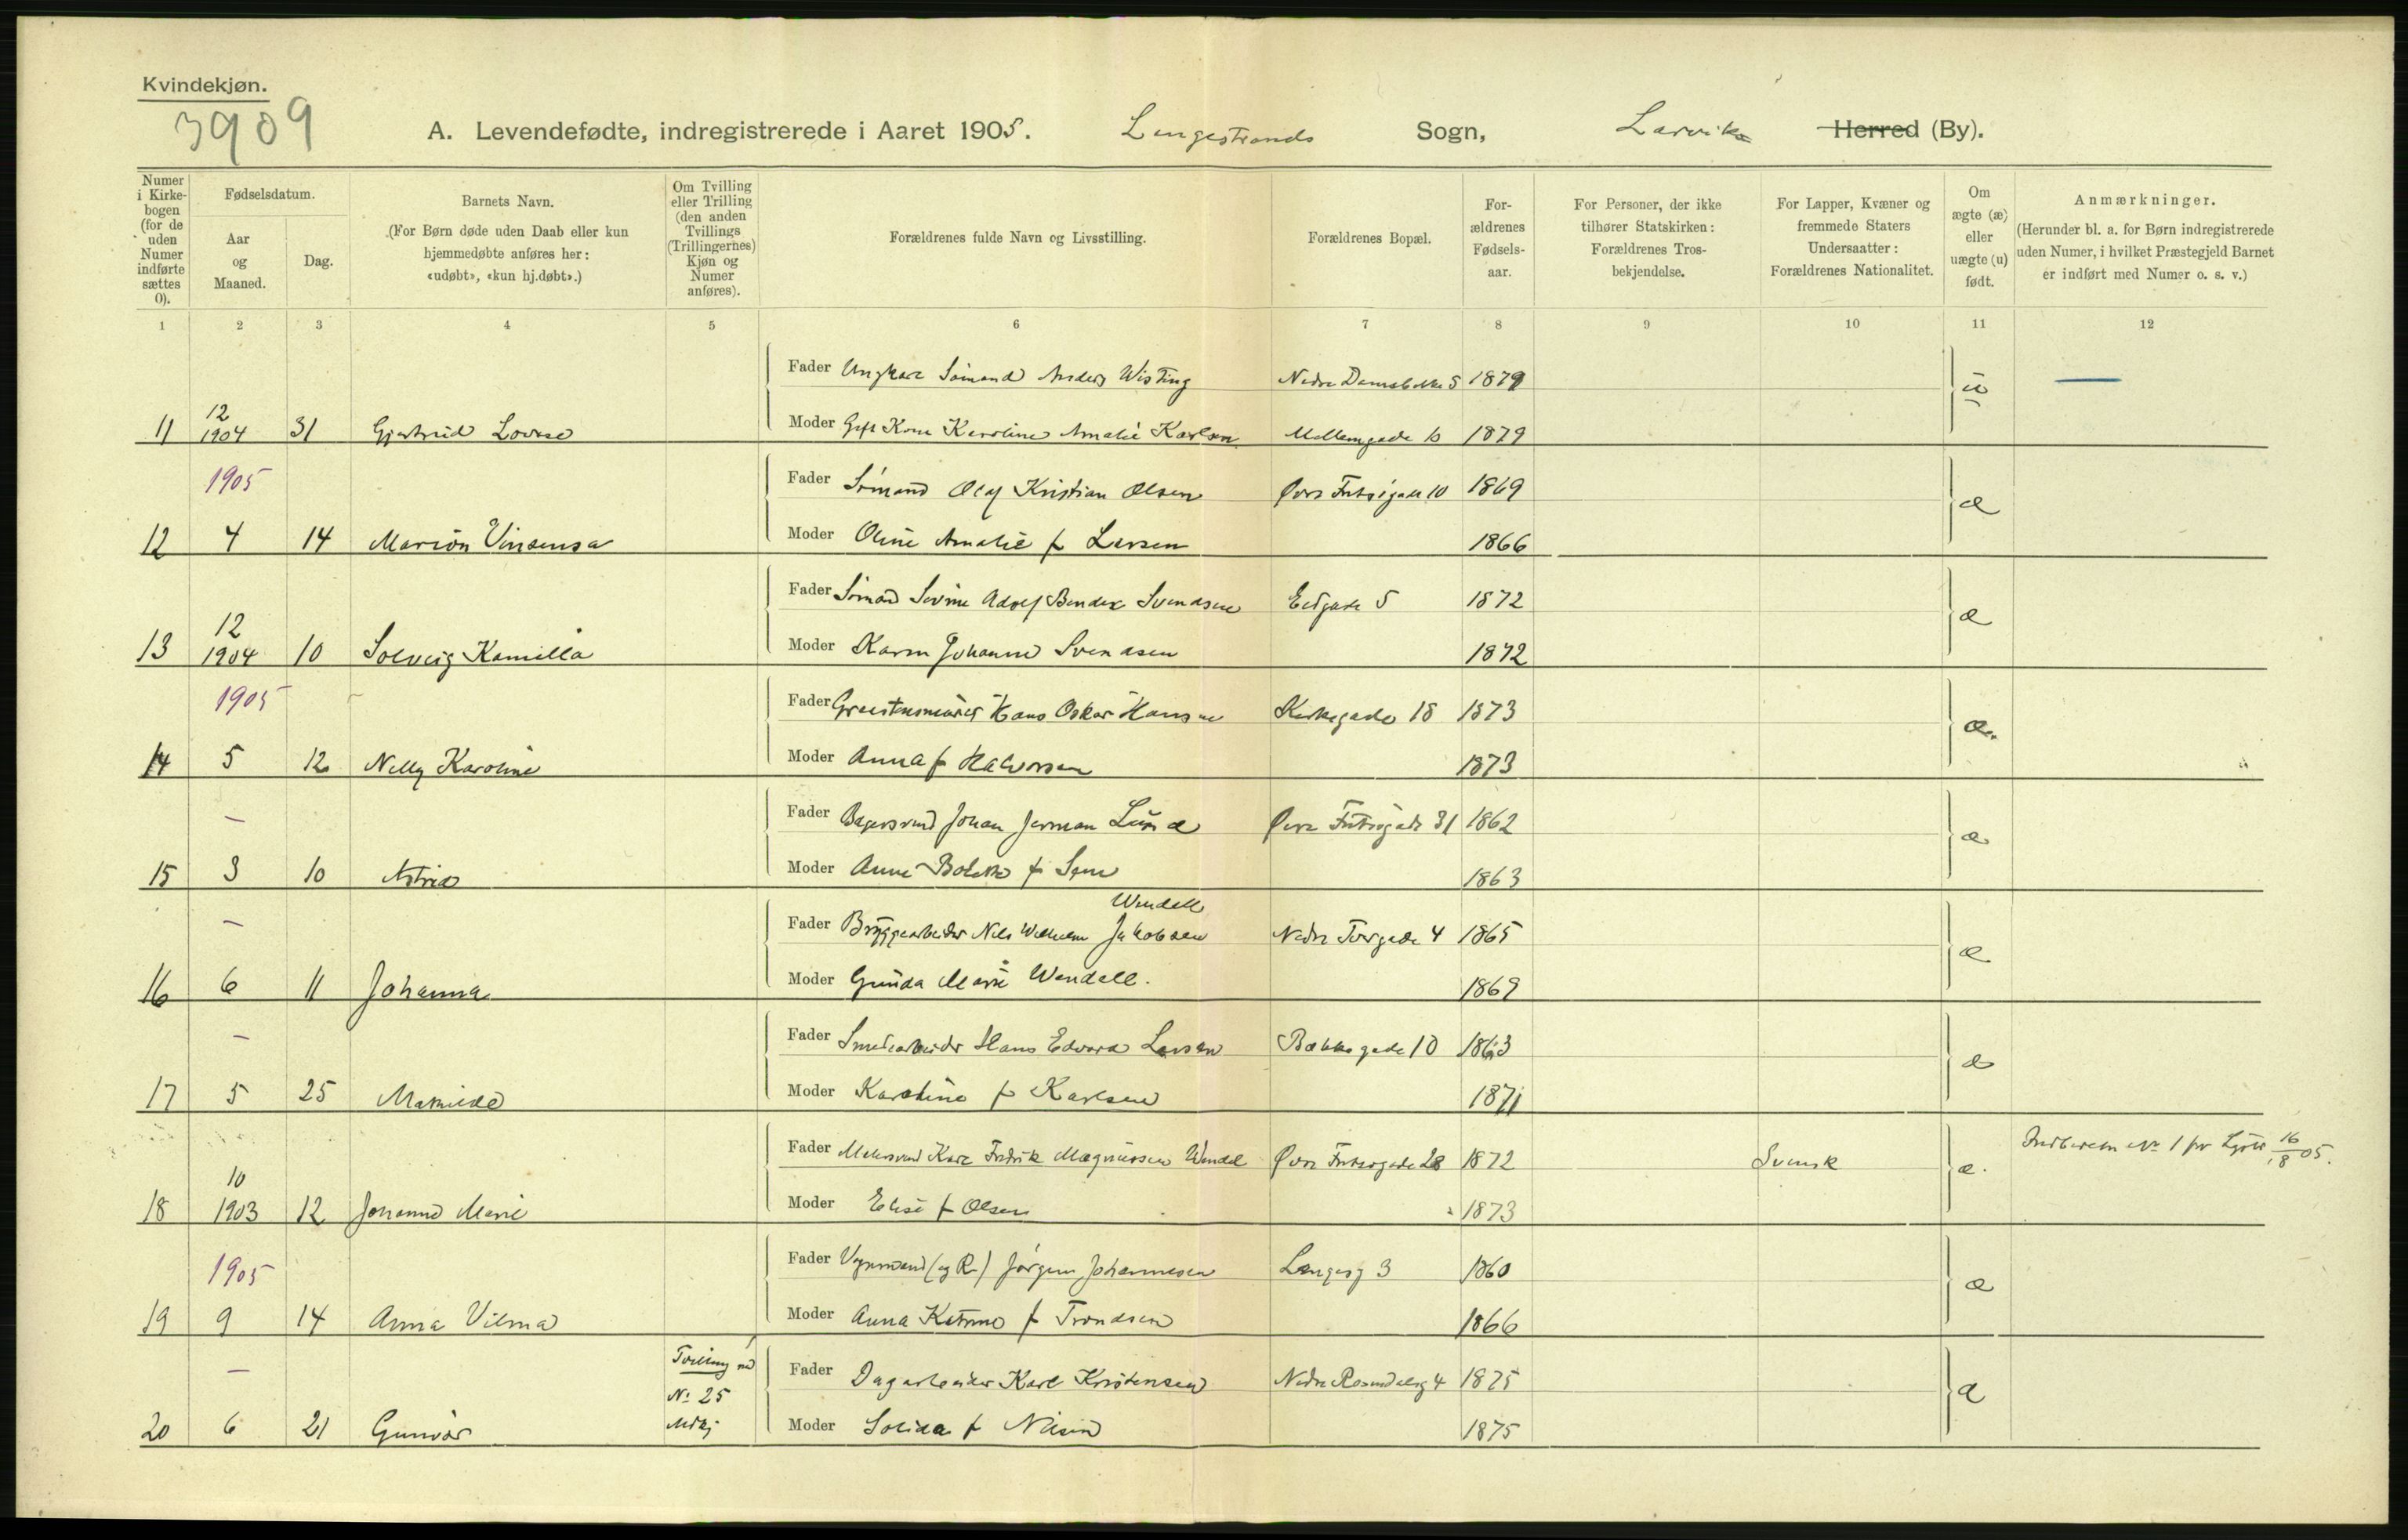 Kvindekjøn.
3909
A. Levendefødte, indregistrerede i Aaret 1905. Langestrands Sogn, Larviks Herred (By).
Numer i Kirkebogen (for de uden Numer indførte sættes 0).
Fødselsdatum.
Aar og Maaned.
Dag.
Barnets Navn.
(For Børn døde uden Daab eller kun hjemmedøbte anføres her: «udøbt», «kun hj.døbt».)
Om Tvilling eller Trilling (den anden Tvillings (Trillingernes) Kjøn og Numer anføres).
Forældrenes fulde Navn og Livsstilling.
Forældrenes Bopæl.
Forældrenes Fødselsaar.
For Personer, der ikke tilhører Statskirken: Forældrenes Trosbekjendelse.
For Lapper, Kvæner og fremmede Staters Undersaatter: Forældrenes Nationalitet.
Om ægte (æ) eller uægte (u) født.
Anmærkninger.
(Herunder bl. a. for Børn indregistrerede uden Numer, i hvilket Præstegjeld Barnet er indført med Numer o. s. v.)
1 2 3 4 5 6 7 8 9 10 11 12
Fader Ungkarl Sømand Anders Wisting Nedre Damsbakke 5 1879 u —
11 12 1904 31 Gjertrud Lovise Moder Gift Kone Karoline Amalie Karlsen Mellemgade 10 1879
1905 Fader Sømand Olaf Kristian Olsen Øvre Fritzøgade 10 1869 æ
12 4 14 Marion Vinsensa Moder Oline Amalie f Larsen 1866
Fader Sømand Adolf Bendix Svendsen 5 1872 æ
13 12 1904 10 Solveig Kamilla Moder Karen Johanne Svendsen 1872
1905 Fader Hans Oskar Hansen Kirkegade 18 1873 æ.
14 5 12 Nelly Karoline Moder Anna f Halvorsen 1873
— Fader Bagersvend Johan Lund Øvre Fritzøgade 31 1862 æ
15 3 10 Astrid Moder Anne f 1863
Wendell
— Fader Bryggearbeider Nils Wilhelm Jakobsen Nedre Torvgade 4 1865 æ
16 6 11 Johanna Moder Gunda Marie Wendell. 1869
— Fader Smedarbeider Hans Edvard Larsen Bækkegade 10 1863 æ
17 5 25 Moder Karoline f Karlsen 1871
Fader Malersvend Karl Fredrik Magnussen Wendel Øvre Fritzøgade 28 1872 Svensk æ. Indberetn No 1 for 16/8 05.
18 10 1903 12 Johanne Marie Moder Elise f Olsen 1873
1905 Fader Vognmand Jørgen Johannesen Langesg 3 1860 æ
19 9 14 Anna Vilma Moder Anna f Trondsen 1866
— Tvilling md Fader Dagarbeider Karl Kristensen Nedre 4 1875 æ
No 25
20 6 21 Gunvor Mdkj Moder f Nilsen 1875